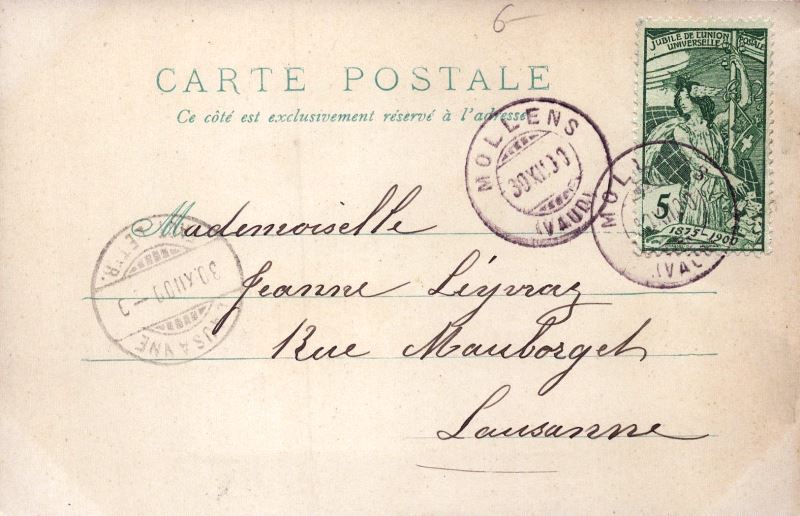 6-
JUBILÉ DE L'UNION POSTALE
UNIVERSELLE
5
1875-1900
CARTE POSTALE
Ce côté est exclusivement réservé à l'adresse
MOLLENS
30.XII.00
(VAUD)
MOLLENS
(VAUD)
Mademoiselle
Jeanne Leyvraz
Rue Mauborget
Lausanne
LAUSANNE
30.XII.00
LETTR.